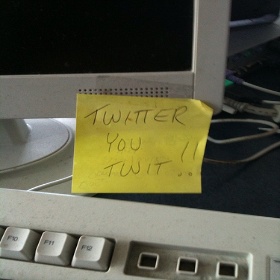 TWITTER
YOU
TWIT!!
F10 F11 F12